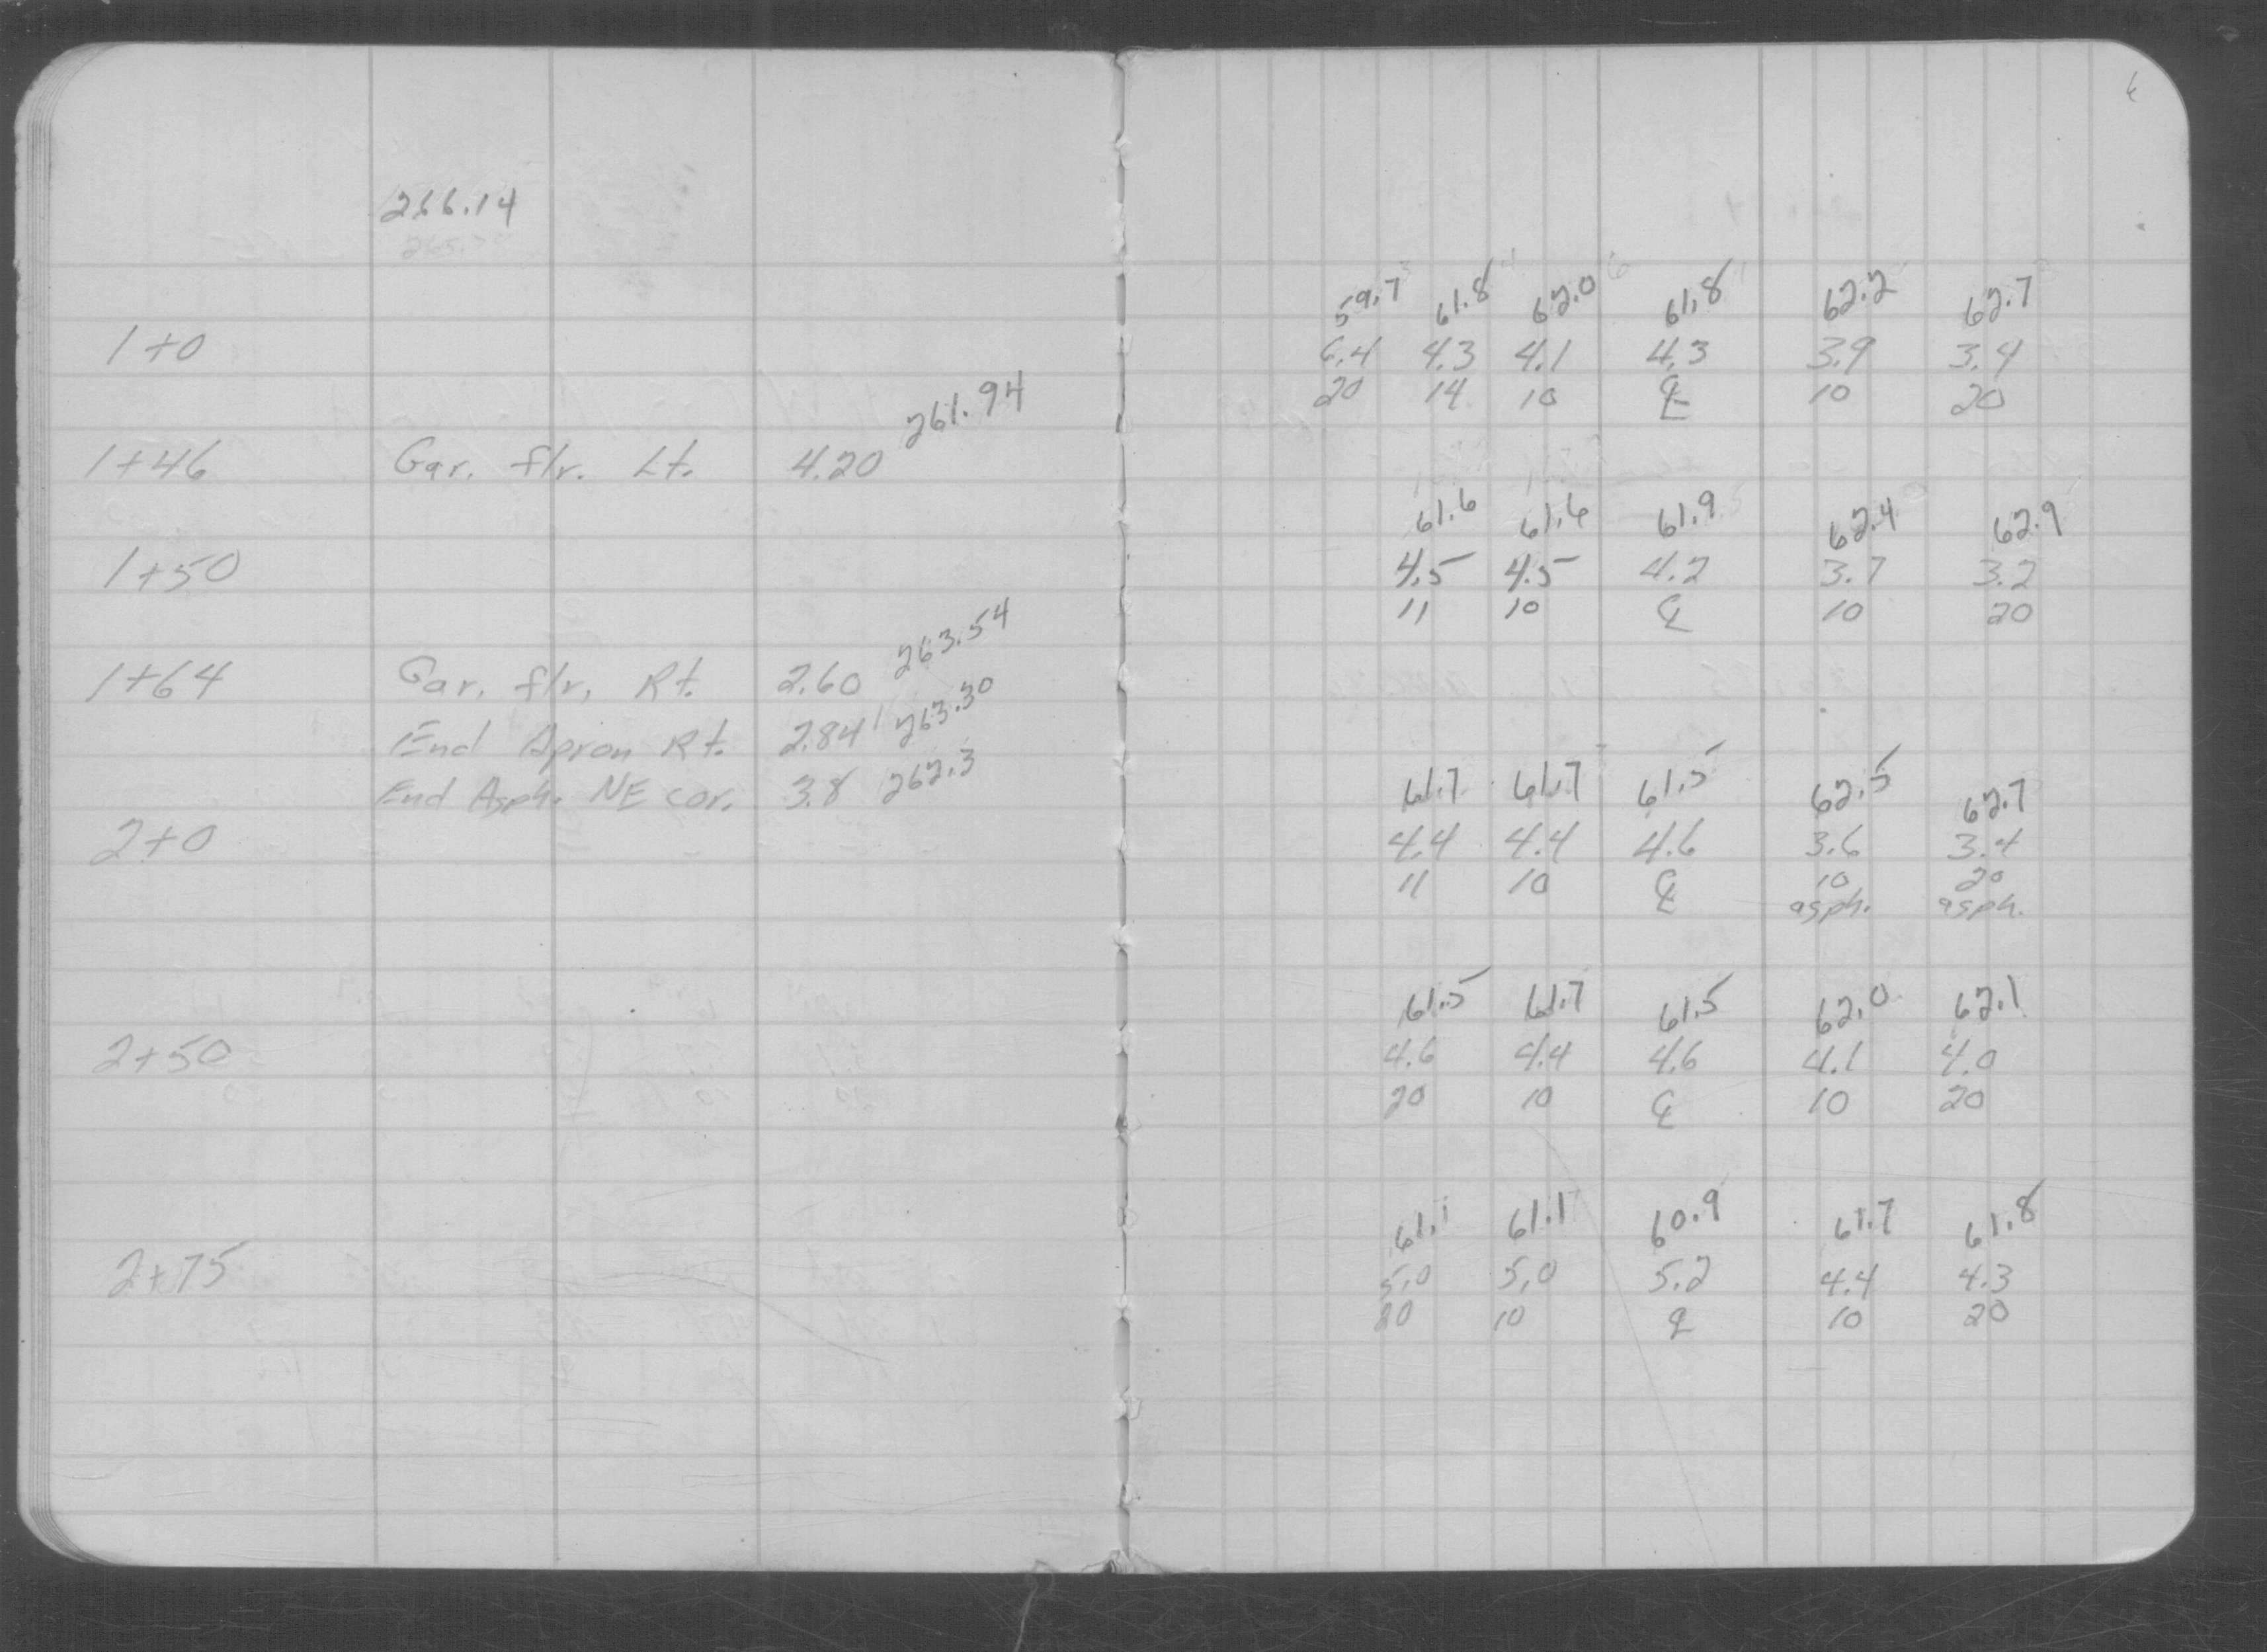 266.14
1+0
1+46 Gar. flr. Lt. 4.20 261.94
1+50
1+64 Gar. flr. Rt. 2.60 263.54
End Apron Rt. 2.84 263.30
End Asph. NE cor. 3.8 262.3
2+0
2+50
2+75
59.7 61.8 62.0 61.8 62.2 62.7
6.4 4.3 4.1 4.3 3.9 3.4
20 14 10 ℄ 10 20
61.6 61.6 61.9 62.4 62.9
4.5 4.5 4.2 3.7 3.2
11 10 ℄ 10 20
61.7 61.7 61.5 62.5 62.7
4.4 4.4 4.6 3.6 3.4
11 10 ℄ 10 20
asph. asph.
61.5 61.7 61.5 62.0 62.1
4.6 4.4 4.6 4.1 4.0
20 10 ℄ 10 20
61.1 61.1 60.9 61.7 61.8
5.0 5.0 5.2 4.4 4.3
20 10 ℄ 10 20